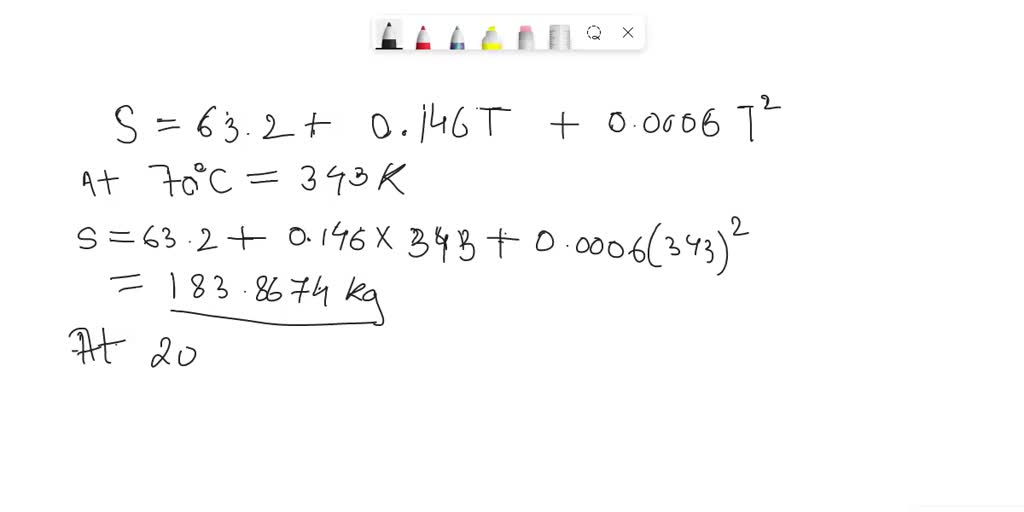 S = 63.2 + 0.146T + 0.0006 T²
At 70°C = 343K
S = 63.2 + 0.146 × 343 + 0.0006(343)²
= 183.8674 kg
At 20